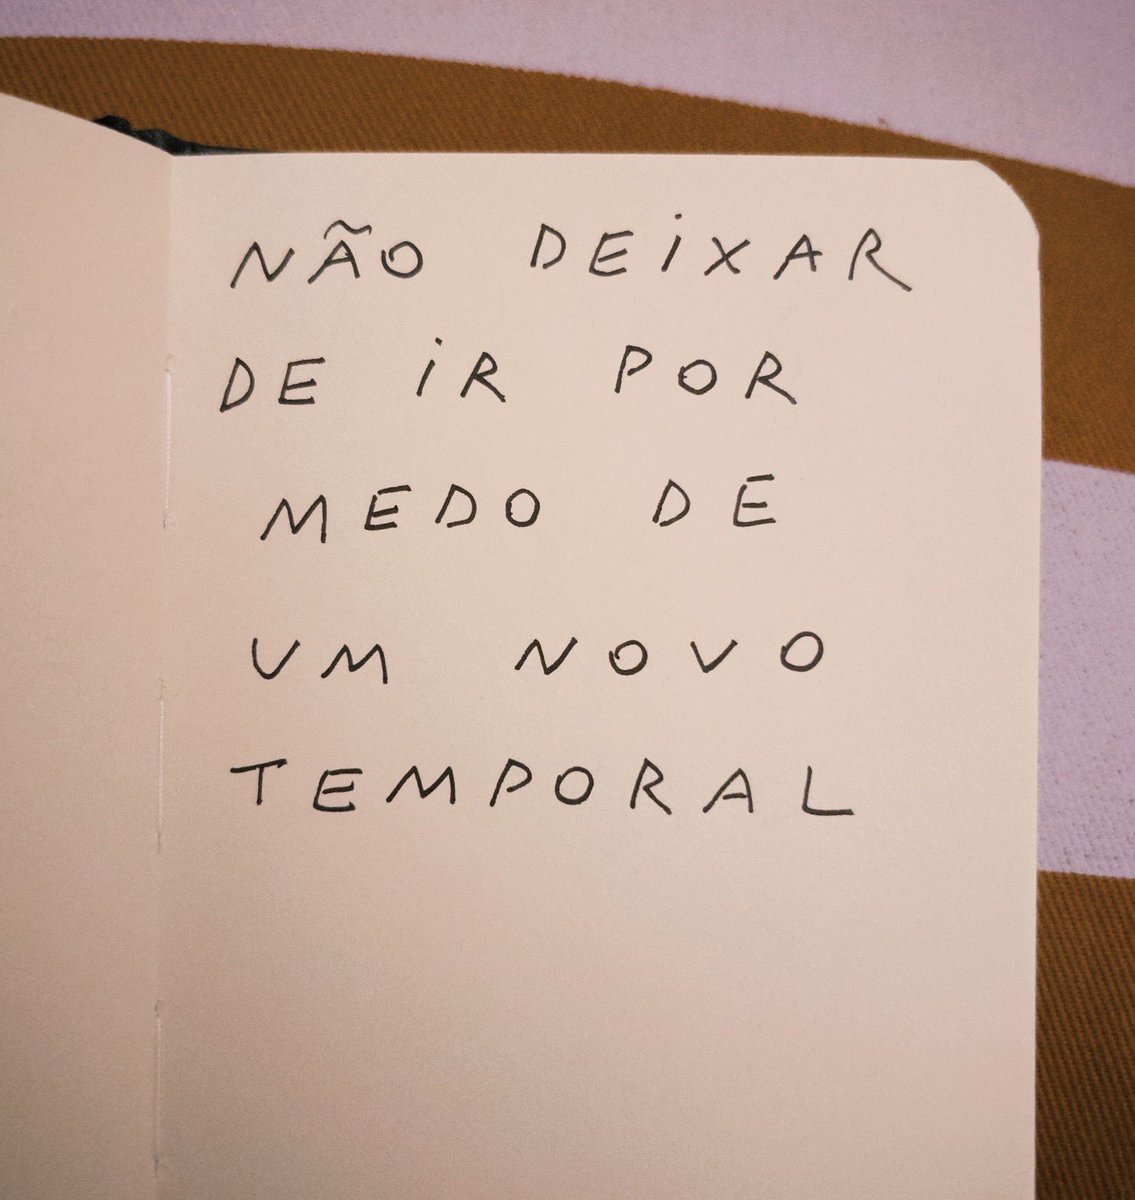 NÃO DEIXAR
DE IR POR
MEDO DE
UM NOVO
TEMPORAL